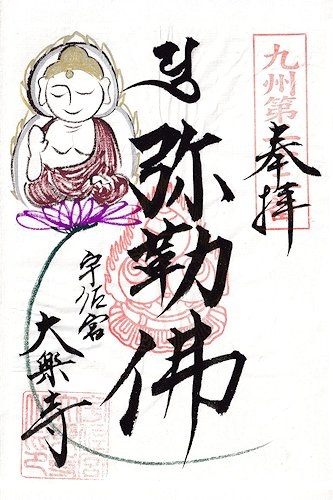 奉拝
九州第
弥勒佛
宇佐宮
大楽寺